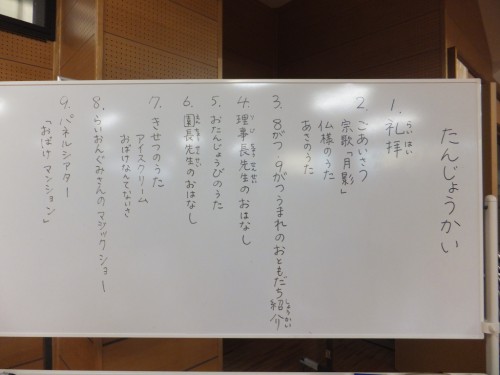 たんじょうかい
1. 礼拝
らいはい
2. ごあいさつ
宗歌「月影」
仏様のうた
あさのうた
3. 8がつ 9がつうまれのおともだち紹介
しょうかい
4. 理事長先生のおはなし
りじちょうせんせい
5. おたんじょうびのうた
6. 園長先生のおはなし
えんちょうせんせい
7. きせつのうた
アイスクリーム
おばけなんてないさ
8. らいおんぐみさんのマジックショー
9. パネルシアター
「おばけ マンション」